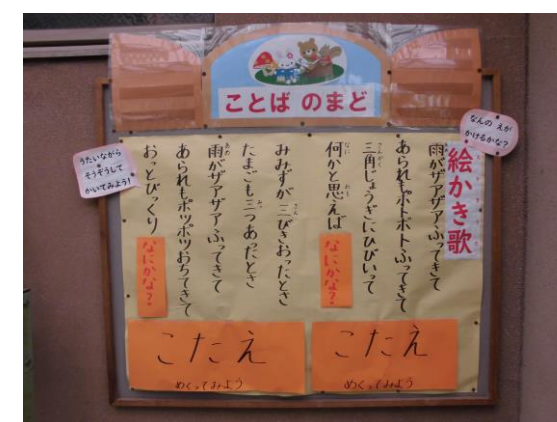 ことば のまど
なんの えが
かけるかな?
うたいながら
そうぞうして
かいてみよう!
絵かき歌
雨がザアザアふってきて
あられもポトポトふってきて
三角じょうぎにひびいって
何かと思えば
なにかな?
みみずが三びきおったとさ
たまごも三つあったとさ
雨がザアザアふってきて
あられもポツポツおちてきて
おっとびっくり
なにかな?
こたえ
めくってみよう
こたえ
めくってみよう